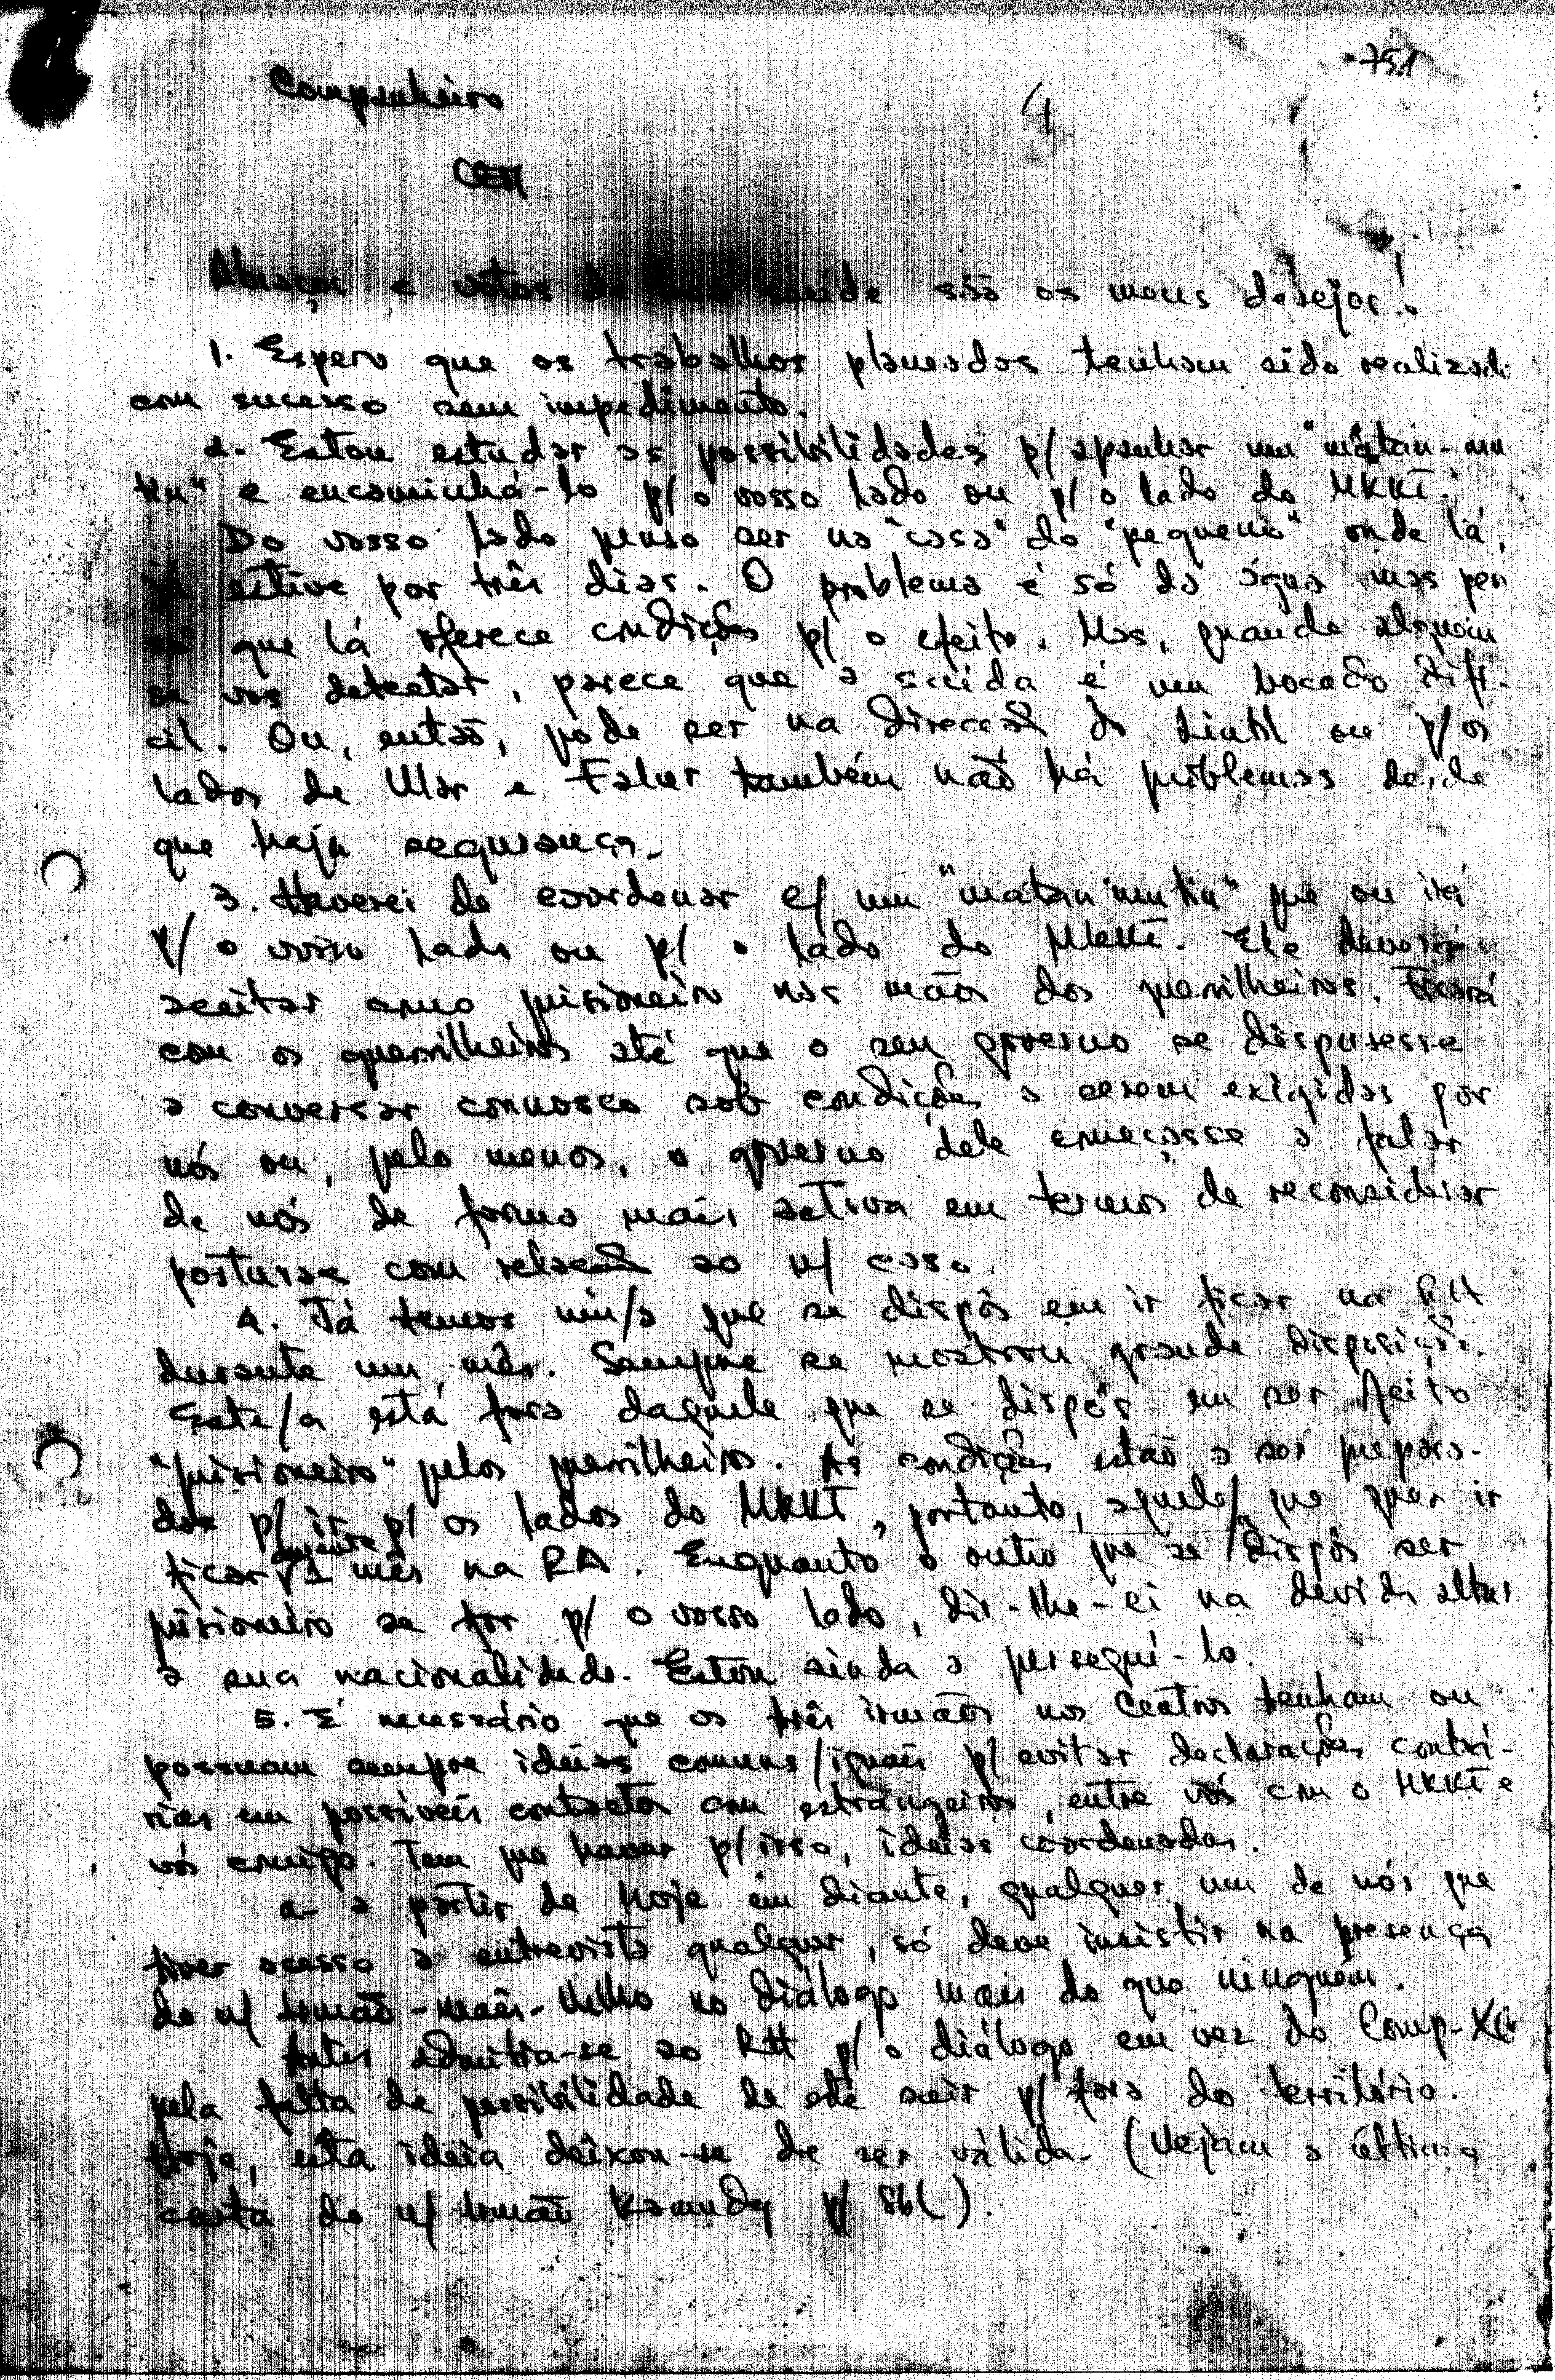 75.1
Companheiro
4
Abraços e votos de saúde são os meus desejos!
1. Espero que os trabalhos planeados tenham sido realizad
com sucesso sem impedimento.
2. Estou estudar as possibilidades p/ apanhar um "matan-mu
tin" e encaminhá-lo p/ o vosso lado ou p/ o lado do MKKI.
Do vosso lado penso ser na "casa" do "pequeno" onde lá,
estive por três dias. O problema é só da água mas pen
so que lá oferece condições p/ o efeito. Mas, quando alguém
se vos detectar, parece que a saída é um bocado difí-
cil. Ou, então, pode ser na direcção do ou p/ os
lados de War e Falur também não há problemas desde
que haja segurança.
3. Haverei de coordenar c/ um "matan mutin" que ou irá
p/ o vosso lado ou p/ o lado do MKKI. Ele deverá
aceitar como prisioneiro nas mãos dos guerrilheiros. Ficará
com os guerrilheiros até que o seu governo se dispusesse
a conversar connosco sob condições a serem exigidas por
nós ou, pelo menos, o governo dele começasse a falar
de nós de forma mais activa em termos de reconsiderar
posturas com relação ao n/ caso.
4. Já temos um/a que se dispôs em ir ficar na
durante um mês. Sempre se mostrou grande disposição.
Este/a está fora daquele que se dispôs em ser feito
"prisioneiro" pelos guerrilheiros. As condições estão a ser prepara-
das p/ ir p/ os lados do MKKI, portanto, aquele/a que quer ir
ficar durante 1 mês na RA. Enquanto o outro que se dispôs ser
prisioneiro se for p/ o vosso lado, dir-lhe-ei na devida altur
a sua nacionalidade. Estou ainda a persegui-lo.
5. É necessário que os três irmãos nos Centros tenham ou
possuam sempre ideias comuns/iguais p/ evitar declarações contrá-
rias em possíveis contactos com estrangeiros, entre vós com o MKKI e
vós comigo. Tem que haver p/ isso, ideias coordenadas.
a- a partir de hoje em diante, qualquer um de nós que
tiver acesso a entrevista qualquer, só deve insistir na presença
do n/ Irmão-mais-Velho no diálogo mais do que ninguém.
Antes admitia-se ao RH p/ o diálogo em vez do Comp-XG
pela falta de possibilidade de este sair p/ fora do território.
Hoje, esta ideia deixou-se de ser válida. (Vejam a última
carta do n/ Irmão p/ ).